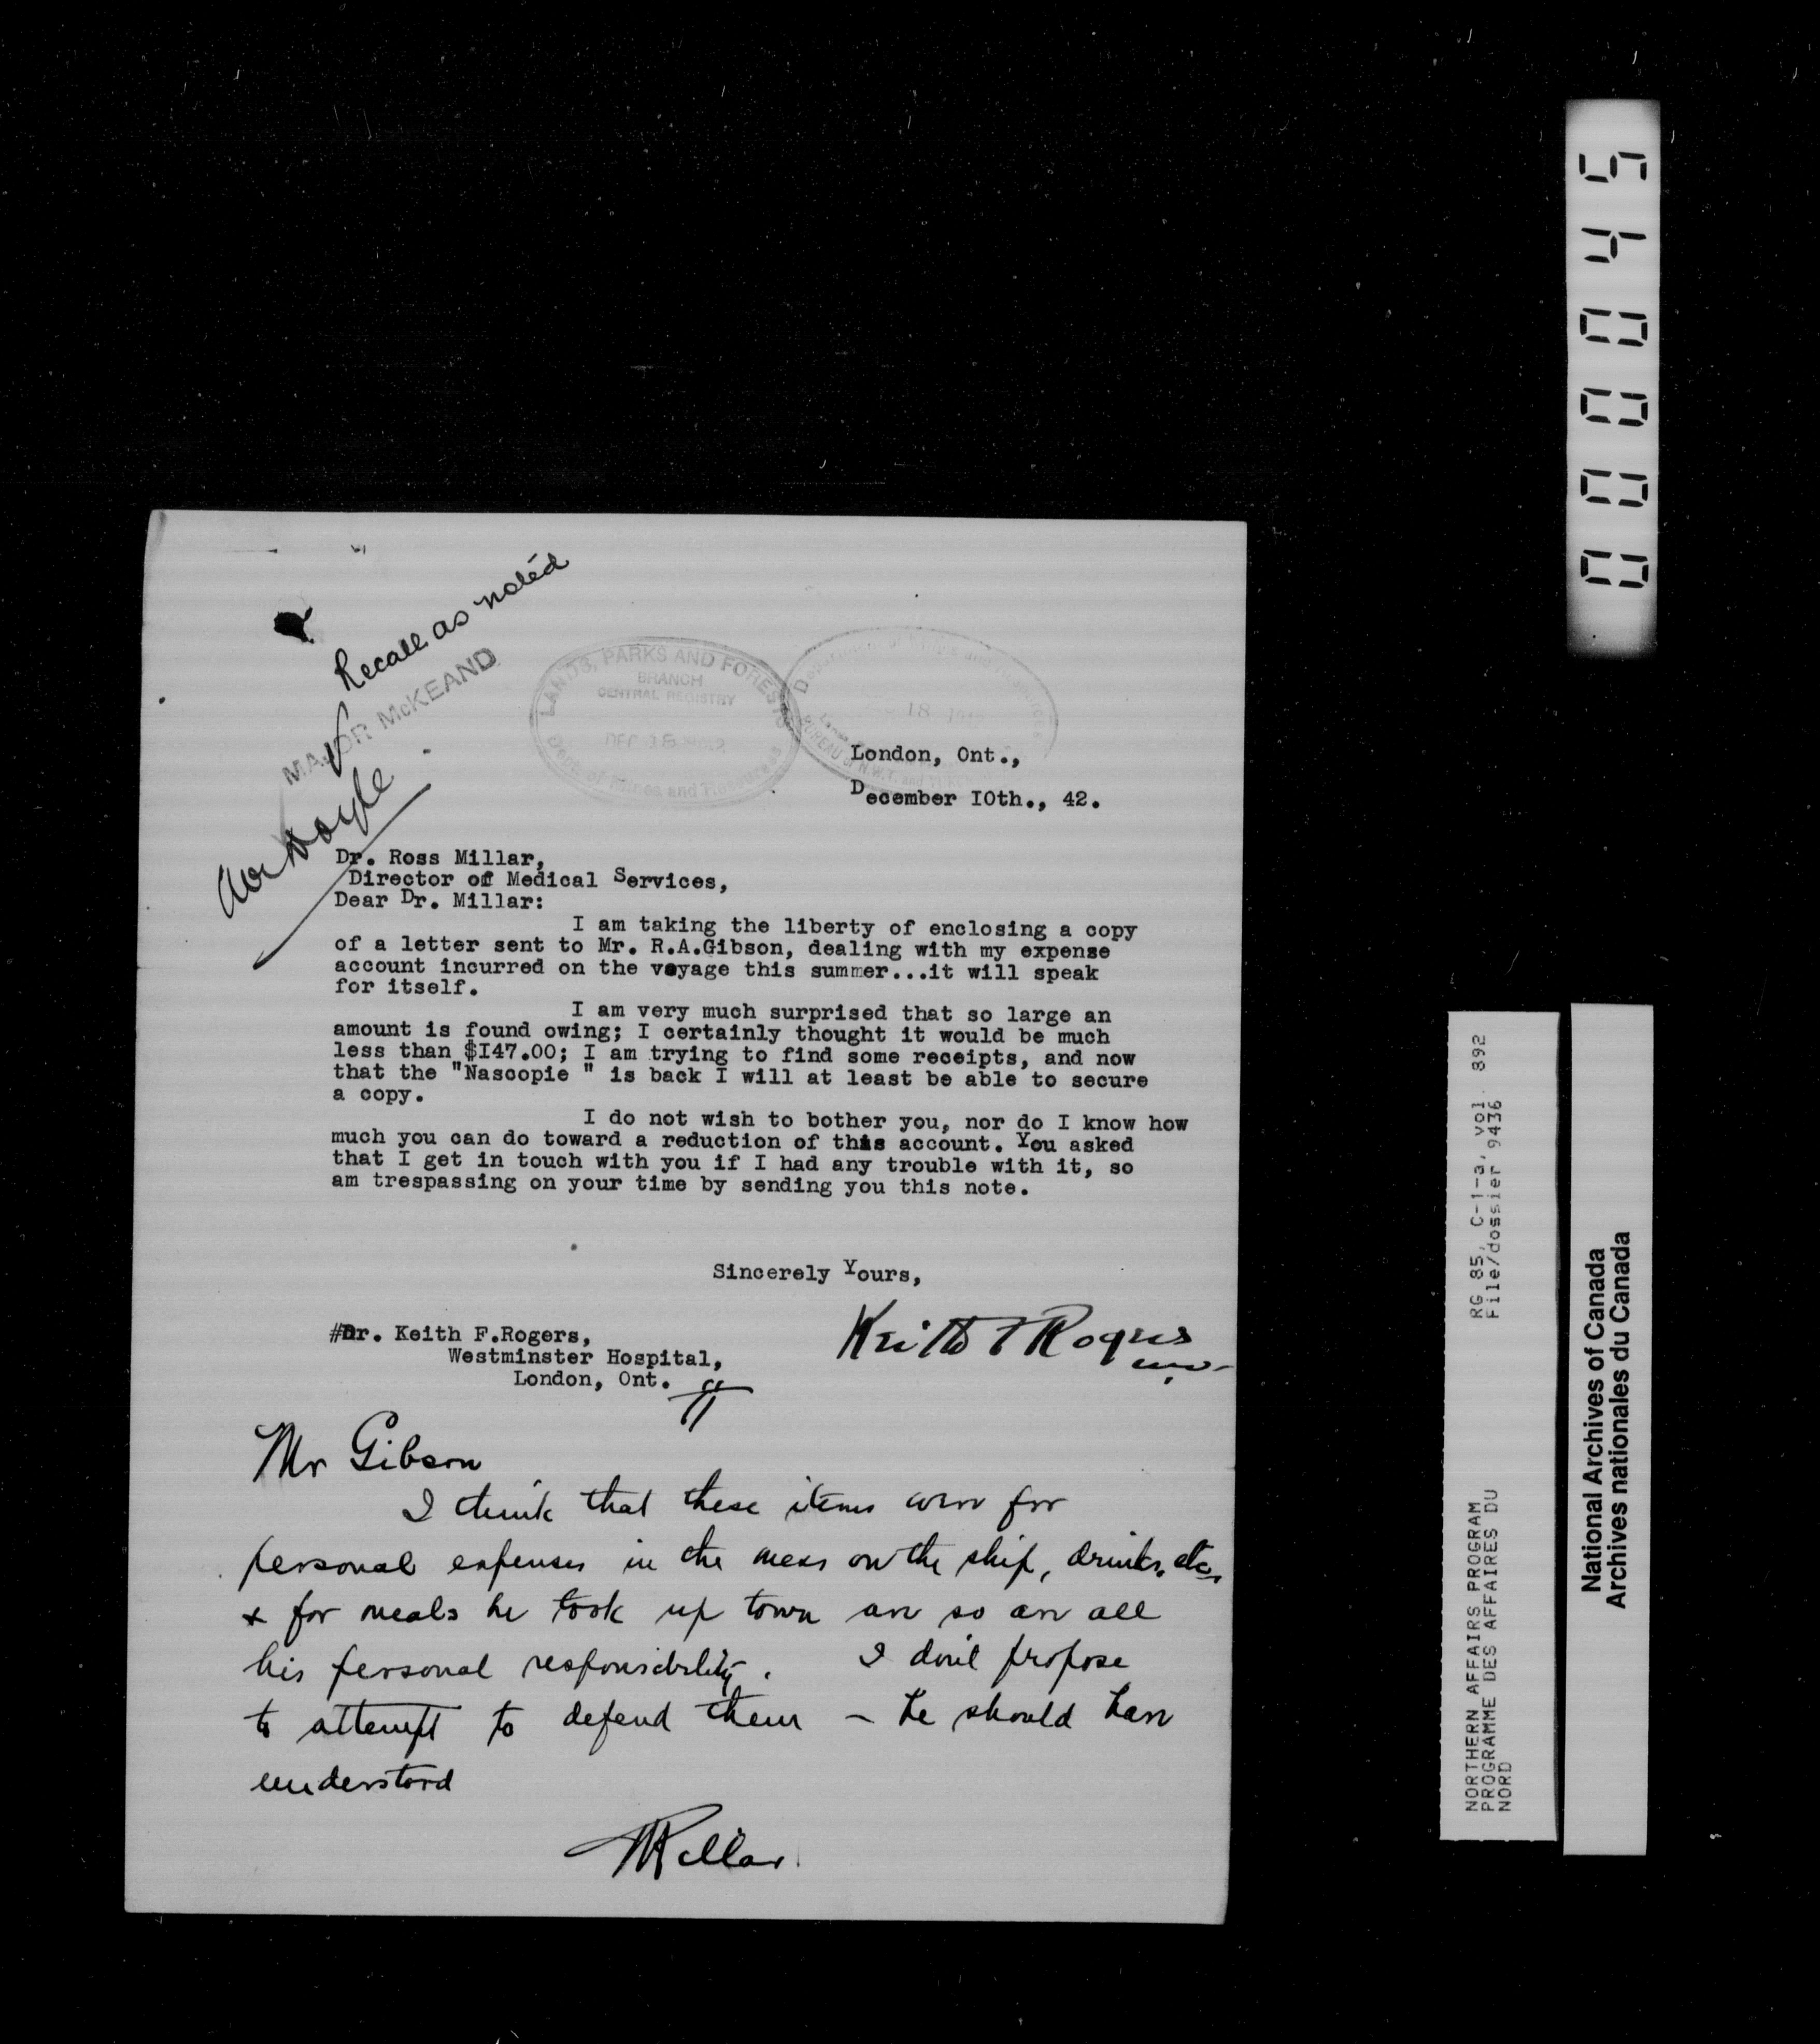 Recall as noted
MAJOR McKEAND
LANDS, PARKS AND FORESTS
BRANCH
CENTRAL REGISTRY
DEC 18 1942
Dept. of Mines and Resources
Department of Mines and Resources
DEC 18 1942
BUREAU of N.W.T. and YUKON
London, Ont.,
December I0th., 42.
Dr. Ross Millar,
Director of Medical Services,
Dear Dr. Millar:
I am taking the liberty of enclosing a copy
of a letter sent to Mr. R.A.Gibson, dealing with my expense
account incurred on the voyage this summer...it will speak
for itself.
I am very much surprised that so large an
amount is found owing; I certainly thought it would be much
less than $I47.00; I am trying to find some receipts, and now
that the "Nascopie " is back I will at least be able to secure
a copy.
I do not wish to bother you, nor do I know how
much you can do toward a reduction of this account. You asked
that I get in touch with you if I had any trouble with it, so
am trespassing on your time by sending you this note.
Sincerely Yours,
Keith F Rogers
#Dr. Keith F.Rogers,
Westminster Hospital,
London, Ont.
Mr Gibson
I think that these items were for
personal expenses in the mess on the ship, drinks, etc,
& for meals he took up town and so are all
his personal responsibility. I don't propose
to attempt to defend them – he should have
understood
Millar
000045
RG 85, C-1-a, vol. 892
File/dossier 9436
NORTHERN AFFAIRS PROGRAM
PROGRAMME DES AFFAIRES DU
NORD
National Archives of Canada
Archives nationales du Canada